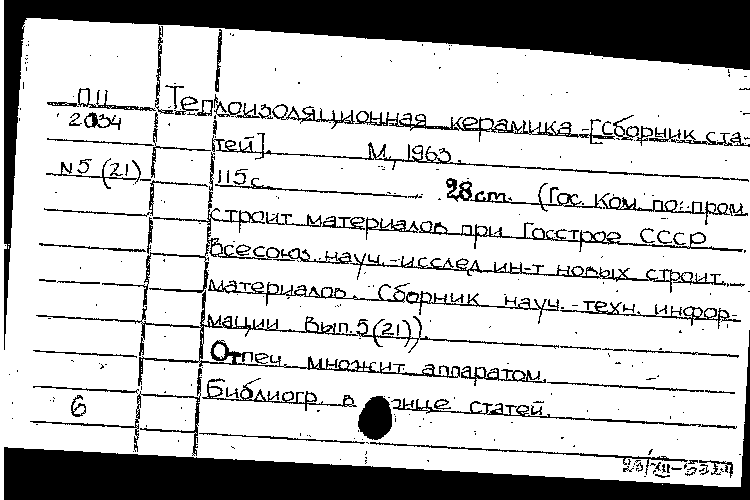 П11 Теплоизоляционная керамика [Сборник ста-
2034 тей]. М., 1963.
№5 (21) 115 с. 28 cm. (Гос. Ком. по пром.
строит материалов при Госстрое СССР
Всесоюз. науч.-исслед. ин-т новых строит.
материалов. Сборник науч.-техн. инфор-
мации Вып. 5(21)).
Отпеч. множит. аппаратом.
Библиогр. в статей.
6